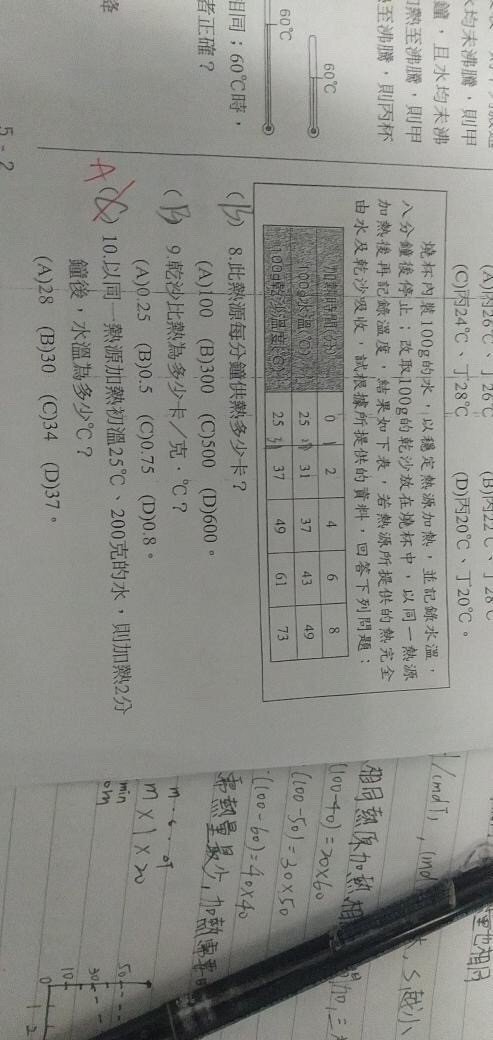 水均未沸騰，則甲
鐘，且水均未沸
熱至沸騰，則甲
至沸騰，則丙杯
60℃
60℃
相同；60℃時，
者正確？
5-2
(C)丙24℃、丁28℃
(D)丙20℃、丁20℃。
燒杯內裝100g的水，以穩定熱源加熱，並記錄水溫，
八分鐘後停止；改取100g的乾沙放在燒杯中，以同一熱源
加熱後再記錄溫度，結果如下表，若熱源所提供的熱完全
由水及乾沙吸收，試根據所提供的資料，回答下列問題：
加熱時間(分) 0 2 4 6 8
100g水溫(℃) 25 31 37 43 49
100g乾沙溫度(℃) 25 37 49 61 73
(B) 8.此熱源每分鐘供熱多少卡？
(A)100 (B)300 (C)500 (D)600。
(B) 9.乾沙比熱為多少卡／克．℃？
(A)0.25 (B)0.5 (C)0.75 (D)0.8。
A (C) 10.以同一熱源加熱初溫25℃、200克的水，則加熱2分
鐘後，水溫為多少℃？
(A)28 (B)30 (C)34 (D)37。
相同熱原加熱相
(100-40)=20×60
(100-50)=30×50
(100-60)=40×40
需熱量最少，加熱需要
m×1×20
min
50
30
10
0 1 2